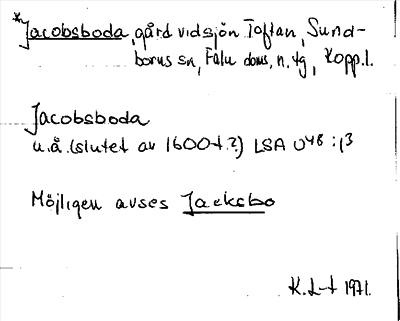 *Jacobsboda, gård vid sjön Toftan, Sund-
borns sn, Falu doms. n. tg, Kopp. l.
Jacobsboda
u.å. (slutet av 1600-t.?) LSA U48:13
Möjligen avses Jacksbo
K. L-t 1971.